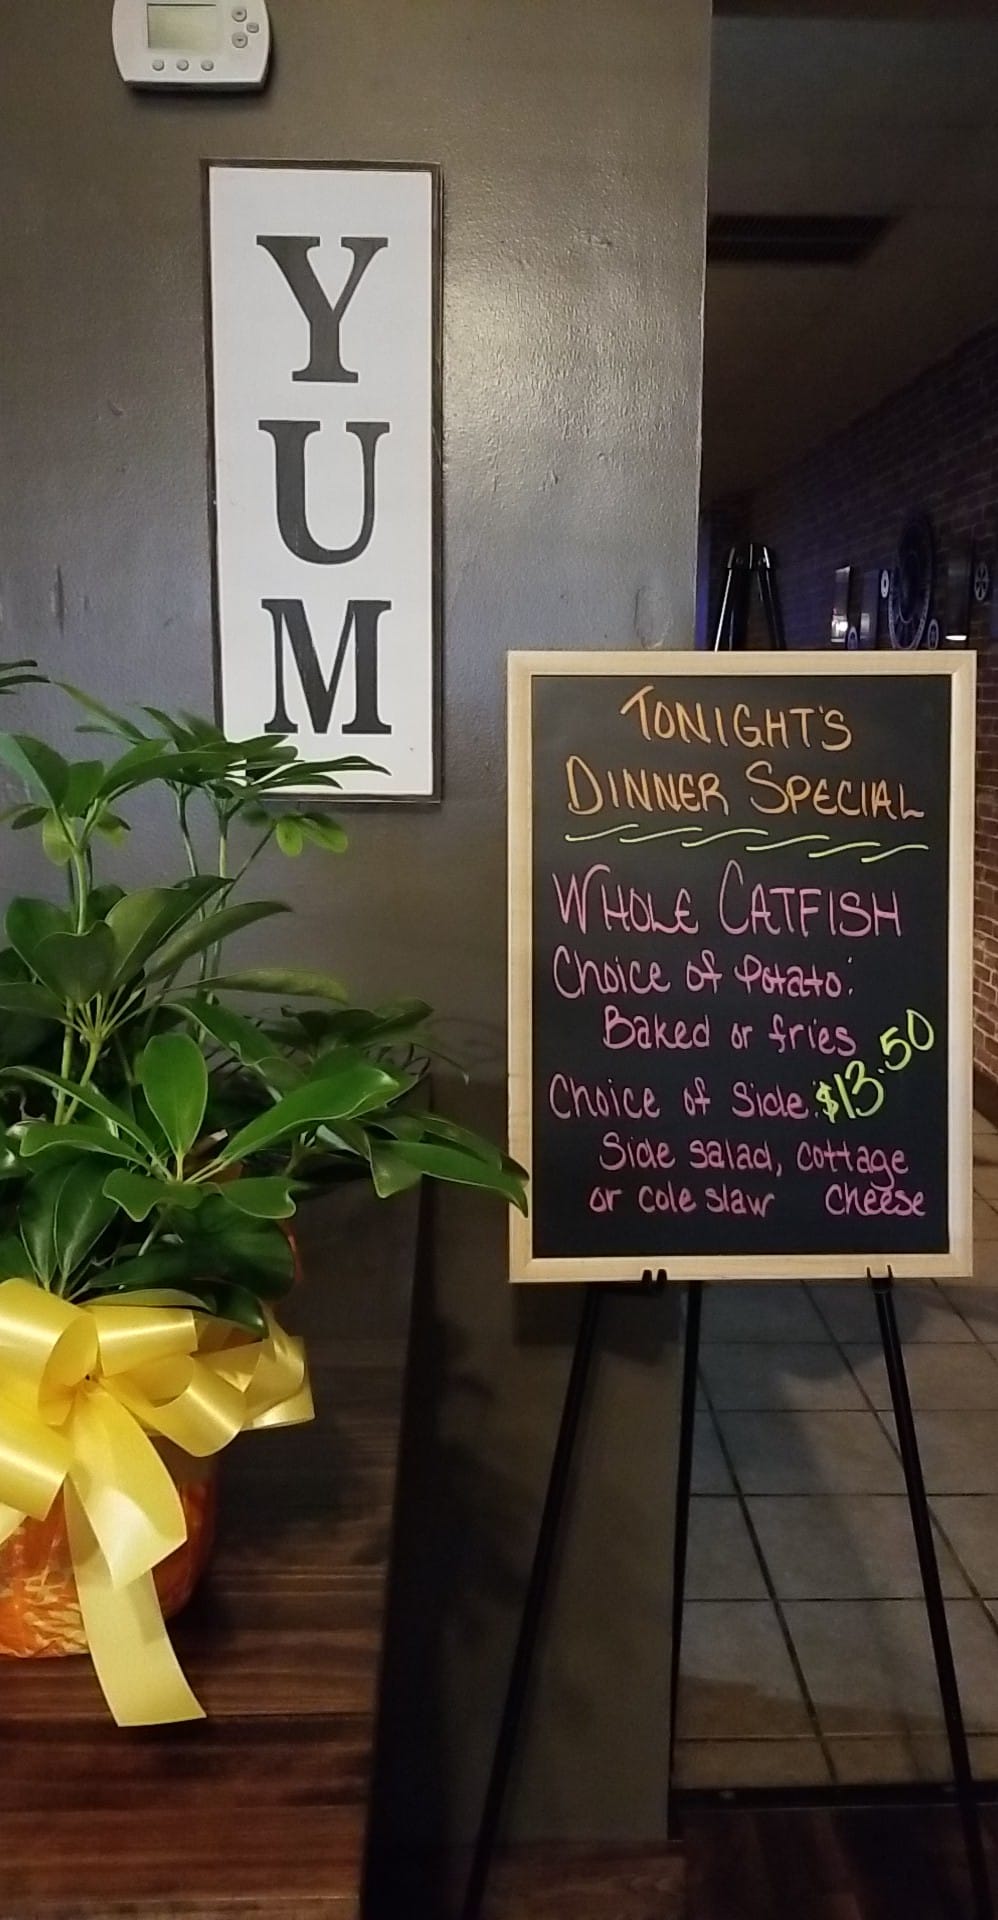 YUM
TONIGHT'S
DINNER SPECIAL
WHOLE CATFISH
Choice of Potato:
Baked or fries
Choice of Side: $13.50
Side salad, cottage
or cole slaw cheese